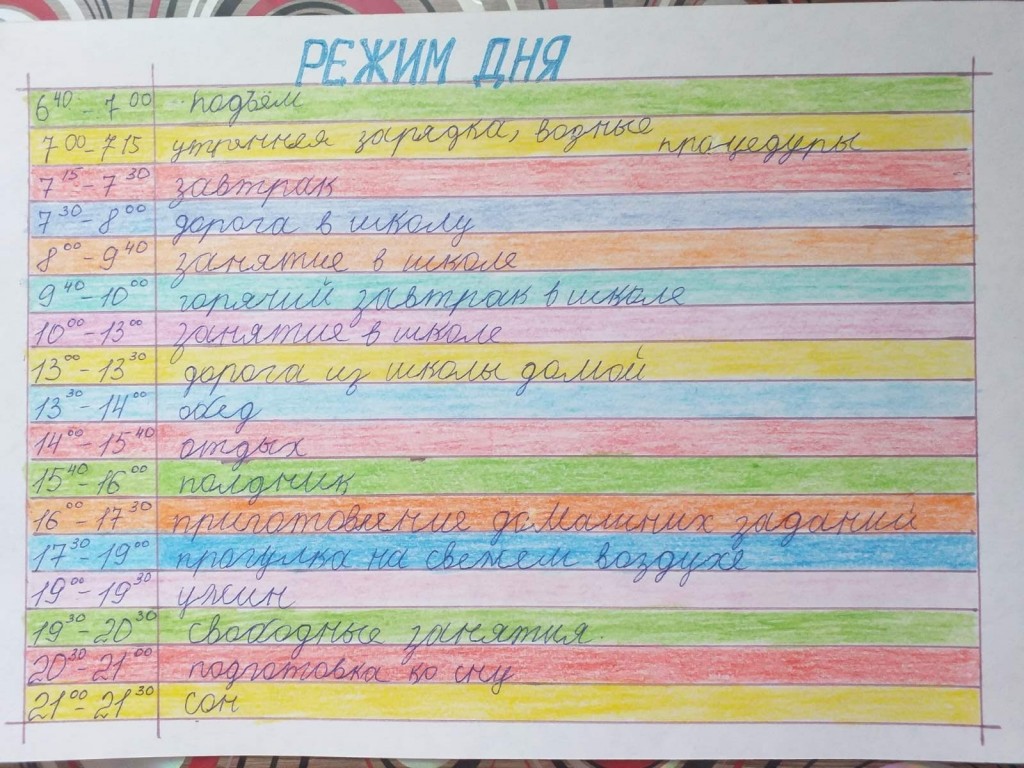 РЕЖИМ ДНЯ
6⁴⁰ - 7⁰⁰ подъём
7⁰⁰ - 7¹⁵ утренняя зарядка, водные процедуры
7¹⁵ - 7³⁰ завтрак
7³⁰ - 8⁰⁰ дорога в школу
8⁰⁰ - 9⁴⁰ занятие в школе
9⁴⁰ - 10⁰⁰ горячий завтрак в школе
10⁰⁰ - 13⁰⁰ занятие в школе
13⁰⁰ - 13³⁰ дорога из школы домой
13³⁰ - 14⁰⁰ обед
14⁰⁰ - 15⁴⁰ отдых
15⁴⁰ - 16⁰⁰ полдник
16⁰⁰ - 17³⁰ приготовление домашних заданий
17³⁰ - 19⁰⁰ прогулка на свежем воздухе
19⁰⁰ - 19³⁰ ужин
19³⁰ - 20³⁰ свободные занятия.
20³⁰ - 21⁰⁰ подготовка ко сну
21⁰⁰ - 21³⁰ сон